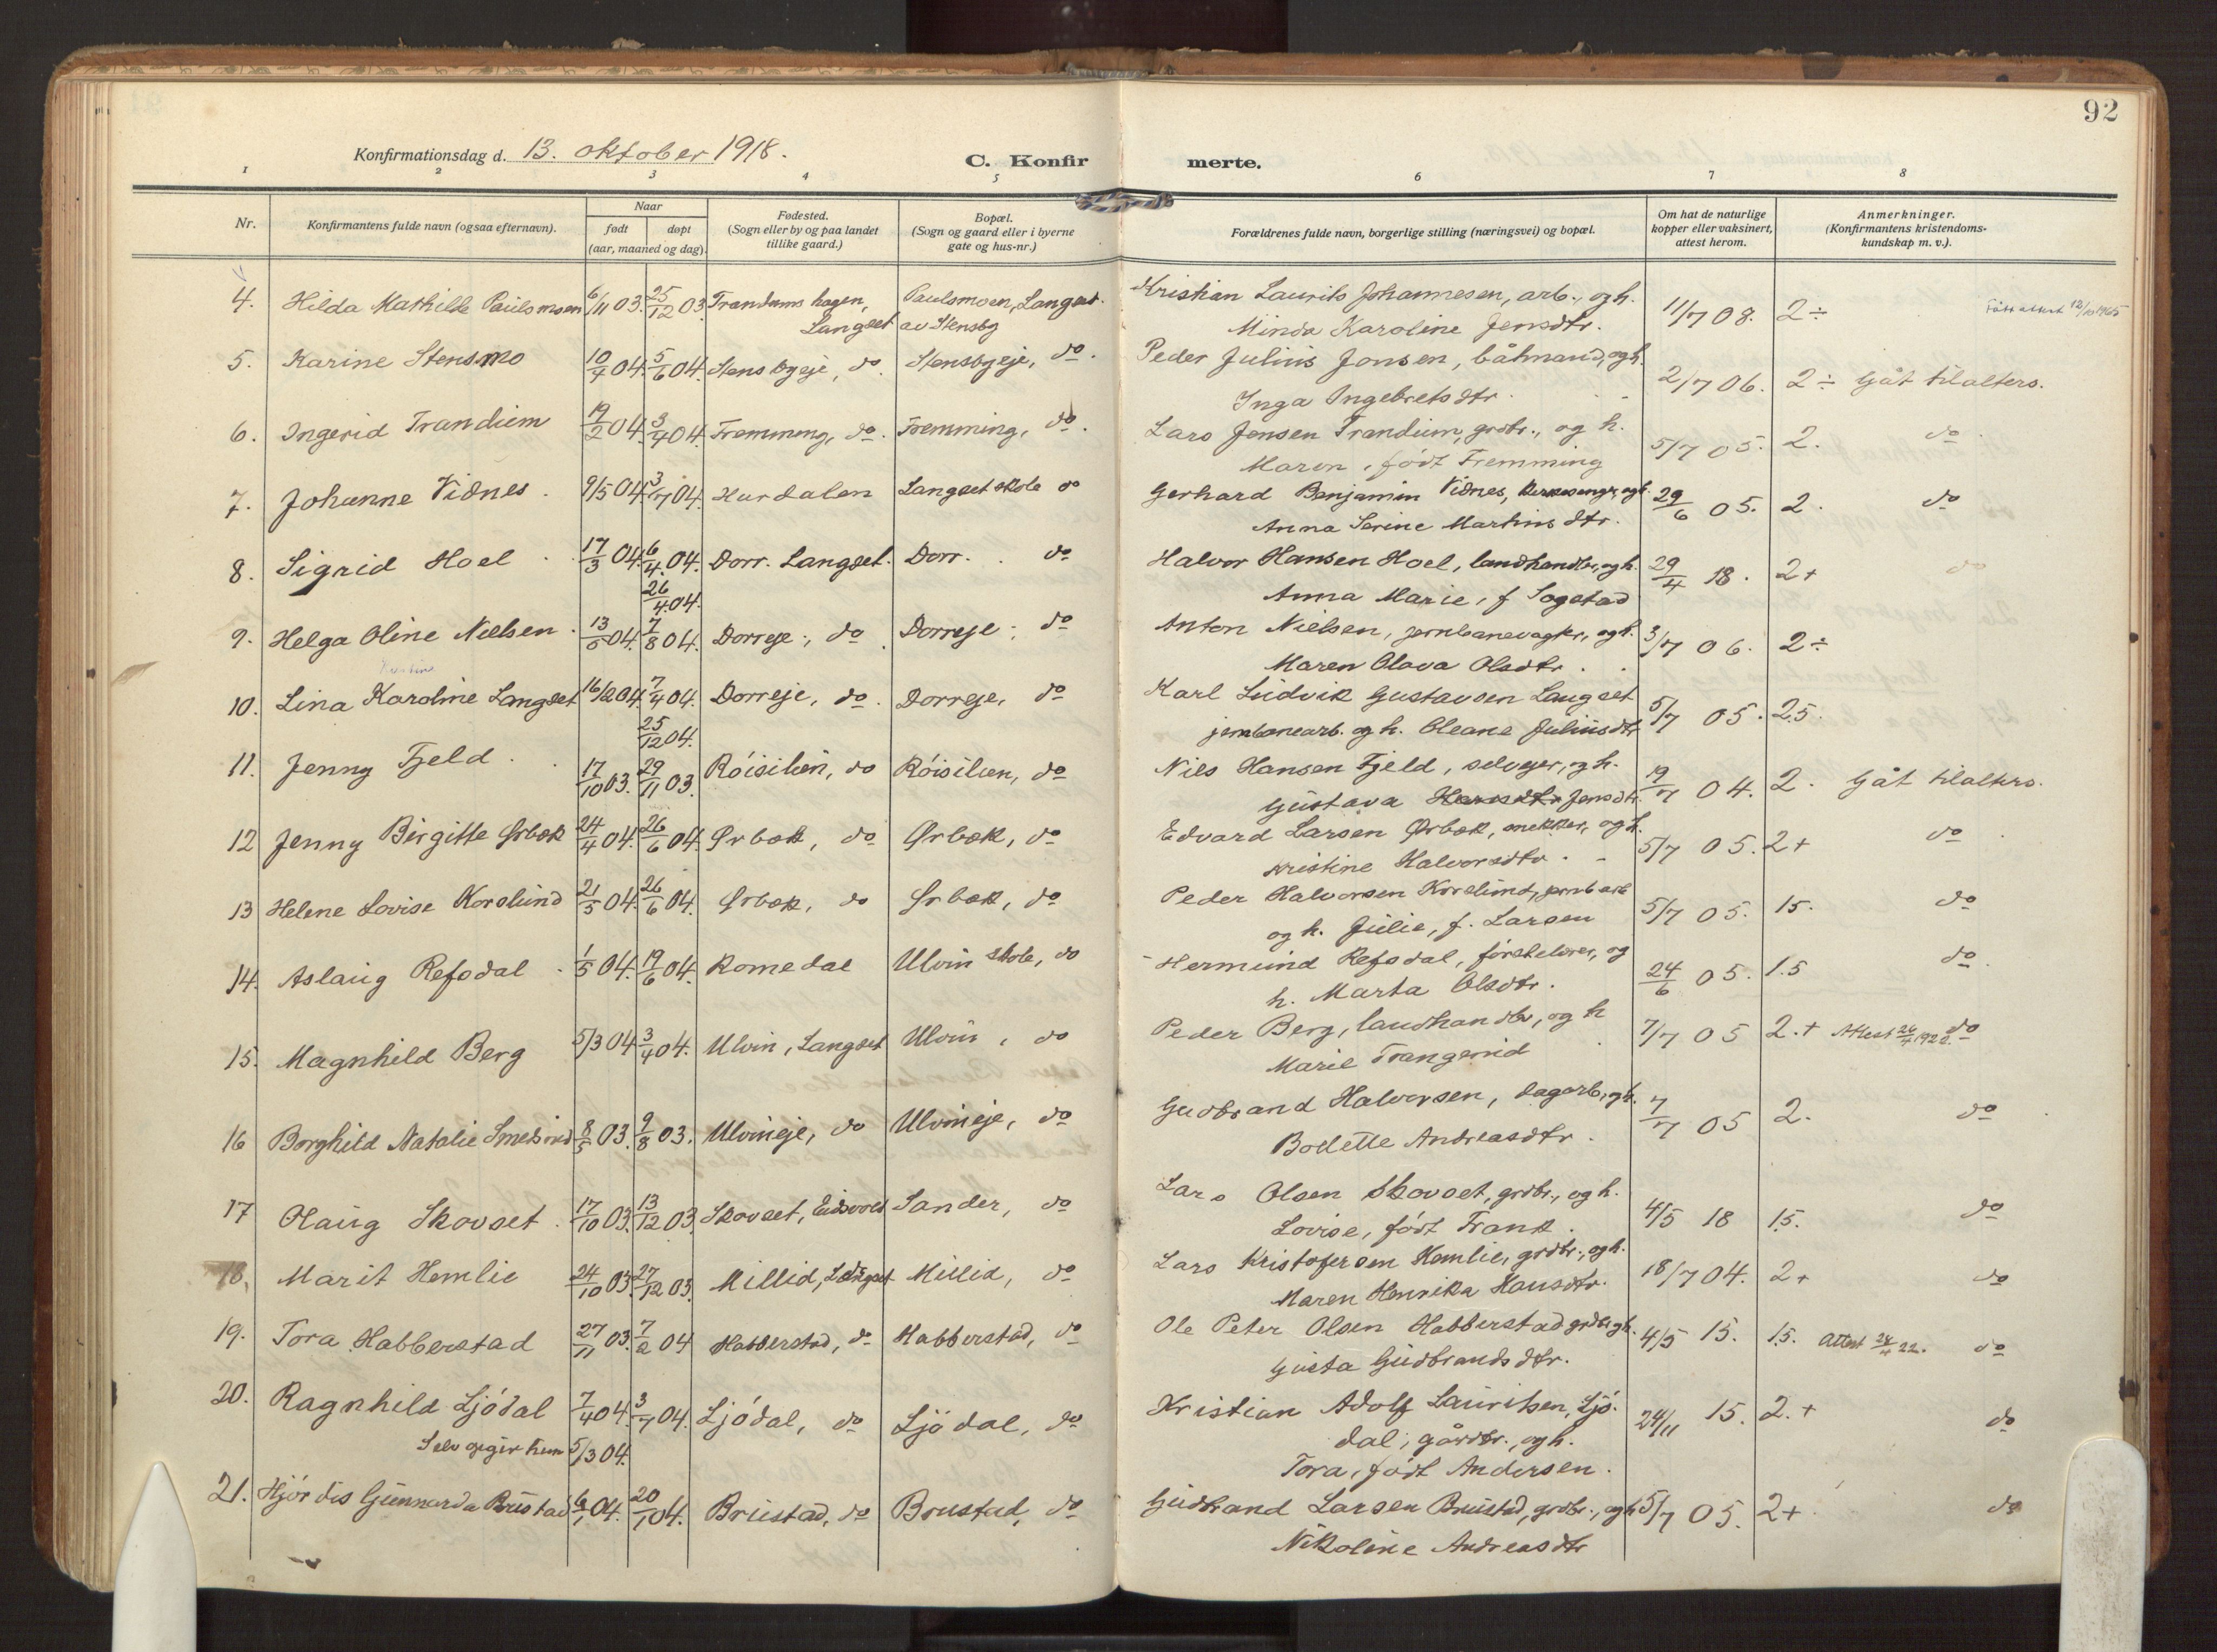 92
Konfirmationsdag d. 13. oktober 1918.
C. Konfirmerte.
1 2 3 4 5 6 7 8
Nr.
Konfirmantens fulde navn (ogsaa efternavn).
Naar
født døpt
(aar, maaned og dag).
Fødested.
(Sogn eller by og paa landet
tillike gaard.)
Bopæl.
(Sogn og gaard eller i byerne
gate og hus-nr.)
Forældrenes fulde navn, borgerlige stilling (næringsvei) og bopæl.
Om hat de naturlige
kopper eller vaksinert,
attest herom.
Anmerkninger.
(Konfirmantens kristendoms-
kundskap m. v.).
4. Hilda Mathilde Paulsmoen 6/11 03. 25/12 03. Trandumshagen, Paulsmoen, Langset. Kristian Laurits Johannesen, arb., og h. 11/7 08. 2÷
Langset av Stensby Minda Karoline Jensdtr.
5. Karine Stensmo 10/4 04. 5/6 04. Stensbyeje, do. Stensbyeje, do. Peder Julius Jonsen, båtmand, og h. 2/7 06. 2÷ Gåt til alters.
Inga Ingebretsdtr.
6. Ingerid Trandum 19/2 04. 3/4 04. Fremming, do. Fremming, do. Lars Jensen Trandum, grdbr., og h. 5/7 05. 2. do.
Maren, født Fremming
7. Johanne Vidnes. 9/5 04. 3/7 04. Hurdalen Langset skole do Gerhard Benjamin Vidnes, og h. 29/6 05. 2. do
Anna Serine Martinsdtr.
8. Sigrid Hoel 17/3 04. 6/4 04. Dorr. Langset. Dorr. do Halvor Hansen Hoel, landhandler, og h. 29/4 18. 2+ do
26/4 04. Anna Marie, f Sogstad
9. Helga Oline Nielsen. 13/5 04. 7/8 04. Dorreje, do. Dorreje, do Anton Nielsen, jernbanevagter, og h. 3/7 06. 2÷
Maren Olava Olsdtr.
10. Lina Karoline Langset 16/2 04. 7/4 04. Dorreje, do. Dorreje, do Karl Ludvik Gustavsen Langset 5/7 05. 2.5.
25/12 04. jernbanearb. og h. Oleane Juliusdtr
11. Jenny Fjeld. 17/10 03. 29/11 03. Röisilien, do Röisilien, do Nils Hansen Fjeld, selvejer, og h. 19/7 04. 2. Gåt til alters.
Gustava Hansdtr Jensdtr.
12 Jenny Birgitte Ørbæk 24/4 04. 26/6 04. Ørbæk, do Ørbæk, do Edvard Larsen Ørbæk, snekker, og h. 5/7 05. 2+ do
Kristine Halvorsdtr.
13 Helene Lovise Korslund 21/5 04. 26/6 04. Ørbæk, do Ørbæk, do Peder Halvorsen Korslund, jernb arb 5/7 05. 1.5. do
og h. Julie, f. Larsen
14. Aslaug Refsdal. 1/5 04. 19/6 04. Romedal Ulvin skole, do Hermund Refsdal, förstelærer, og 24/6 05. 1.5 do.
h. Marta Olsdtr.
15. Magnhild Berg 5/3 04. 3/4 04. Ulvin, Langset Ulvin, do Peder Berg, landhandler, og h 7/7 05 2.+ Attest 26/4 192 do
Marie Trangsrud
16 Borghild Natalie 8/5 03. 9/8 03. Ulvineje, do Ulvineje, do Gudbrand Halvorsen, dagarb, og h. 7/7 05 2. do
Bolette Andreasdtr.
17 Olaug Skovset. 17/10 03. 13/12 03. Skovset, Eidsvold Sander, do Lars Olsen Skovset, grdbr., og h. 4/5 18 1.5. do
Lovise, født Frank.
18. Marit Hemlie 24/10 03. 27/12 03. Millid, Langset Millid, do Lars Kristofersen Hemlie, grdbr., og h. 18/7 04. 2+ do
Maren Henrika Hansdtr.
19. Tora Habberstad 27/11 03. 7/2 04 Habberstad, do Habberstad, do Ole Peter Olsen Habberstad grdbr og h. 4/5 15. 1.5. Attest 24/4 22. do
Gusta Gudbrandsdtr.
20. Ragnhild Ljödal 7/4 04. 3/7 04. Ljödal, do Ljödal, do Kristian Adolf Lauritsen, Ljö- 24/11 15. 2.+ do
Selv opgir hun 5/3 04. dal, gårdbr., og h.
Tora, født Andersen.
21. Hjördis Gunnarda Brustad 6/1 04. 20/1 04. Brustad, do Brustad, do Gudbrand Larsen Brustad, grdbr., og h 5/7 05. 2+ do
Nikoline Andreasdtr